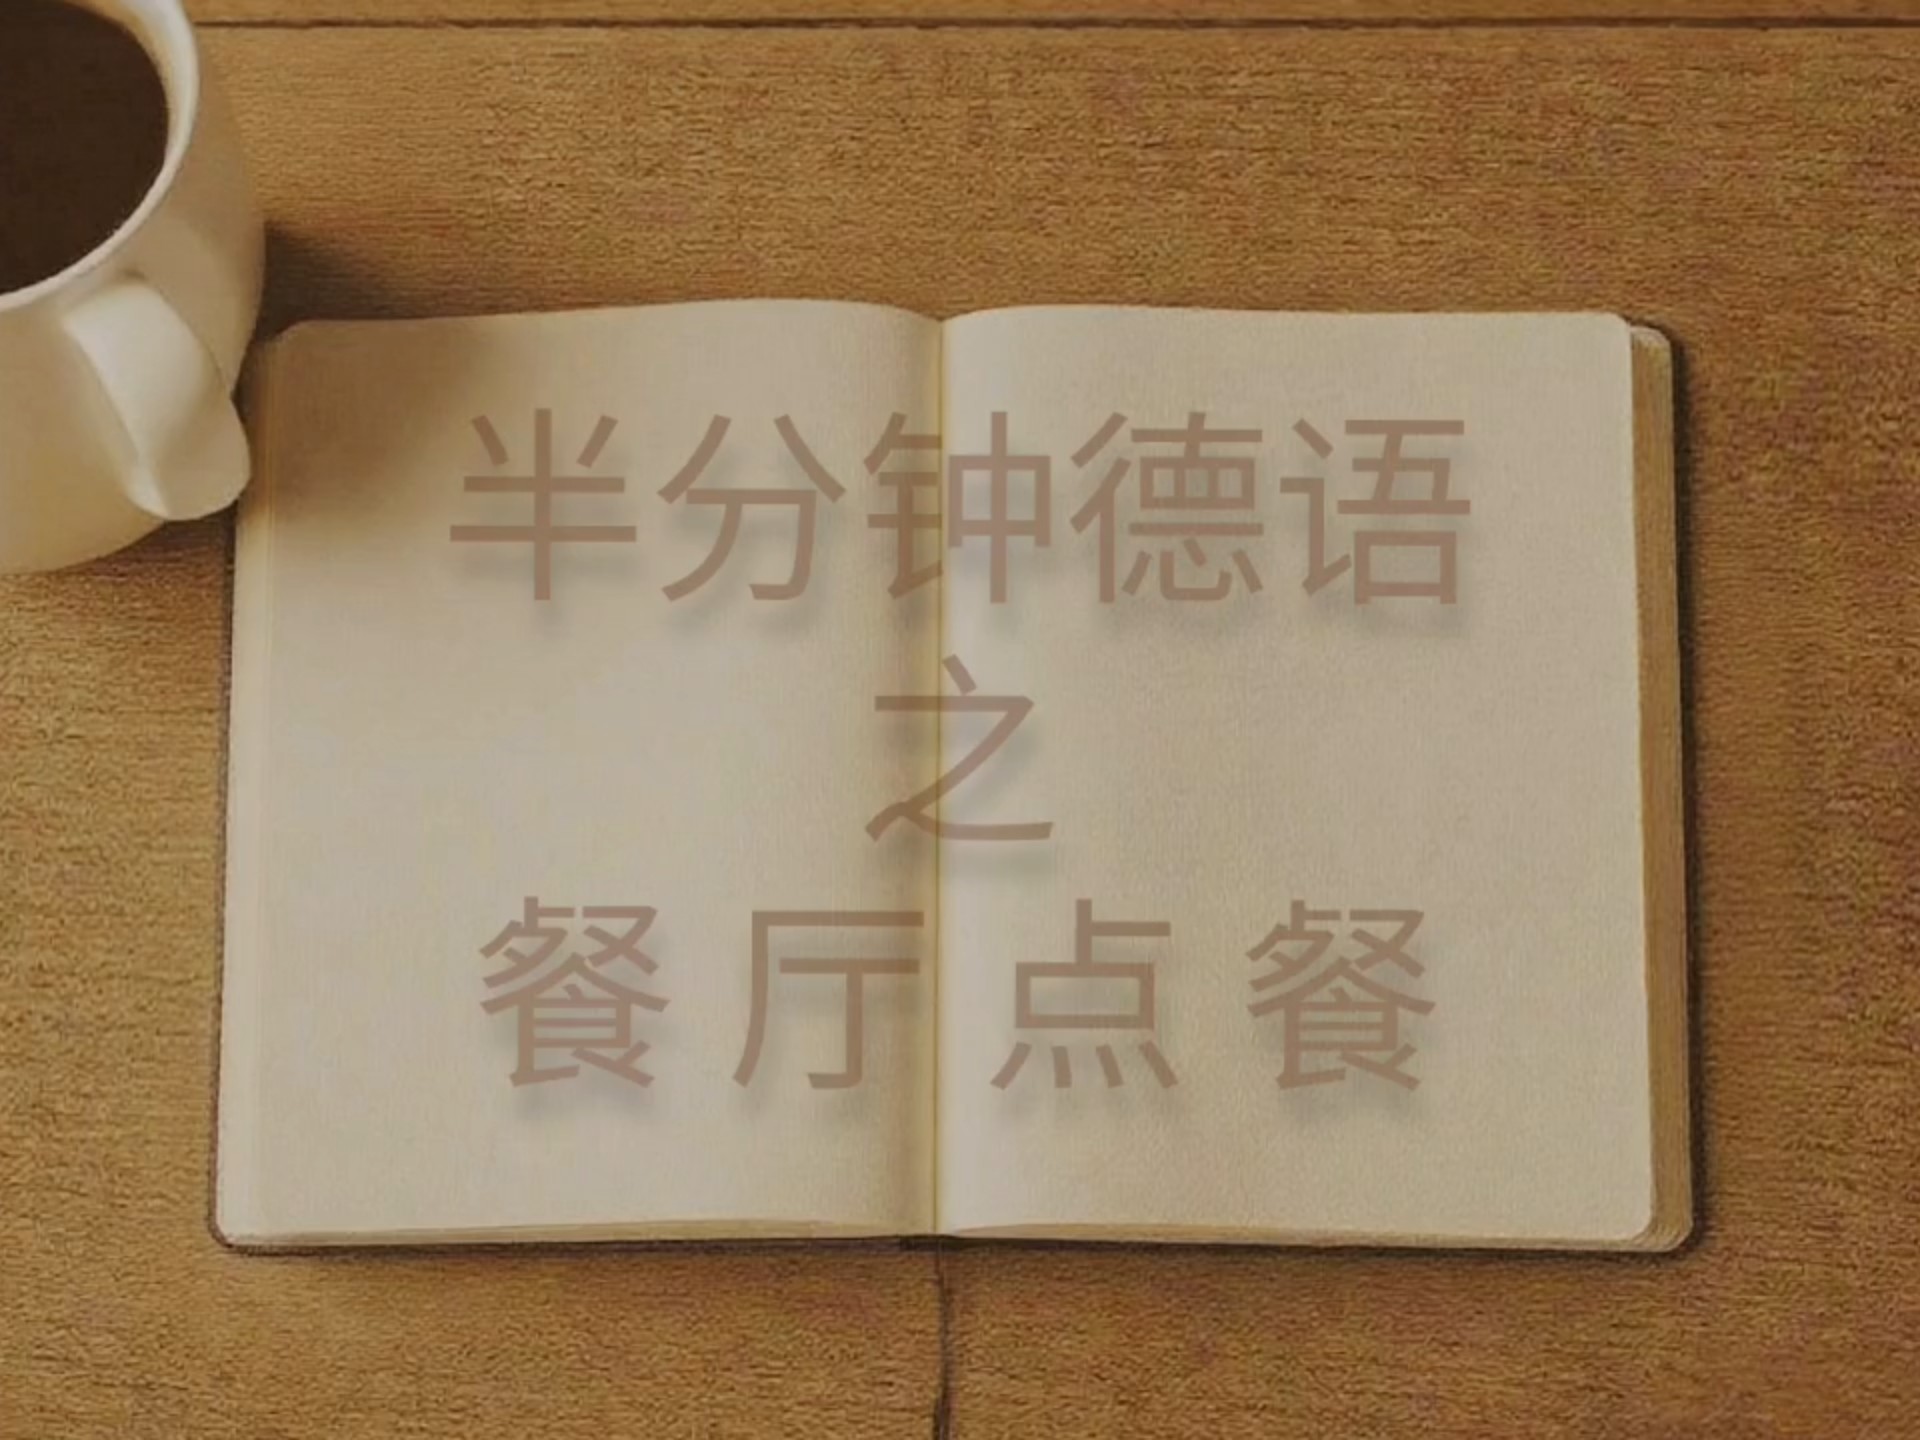 半分钟德语
之
餐厅点餐